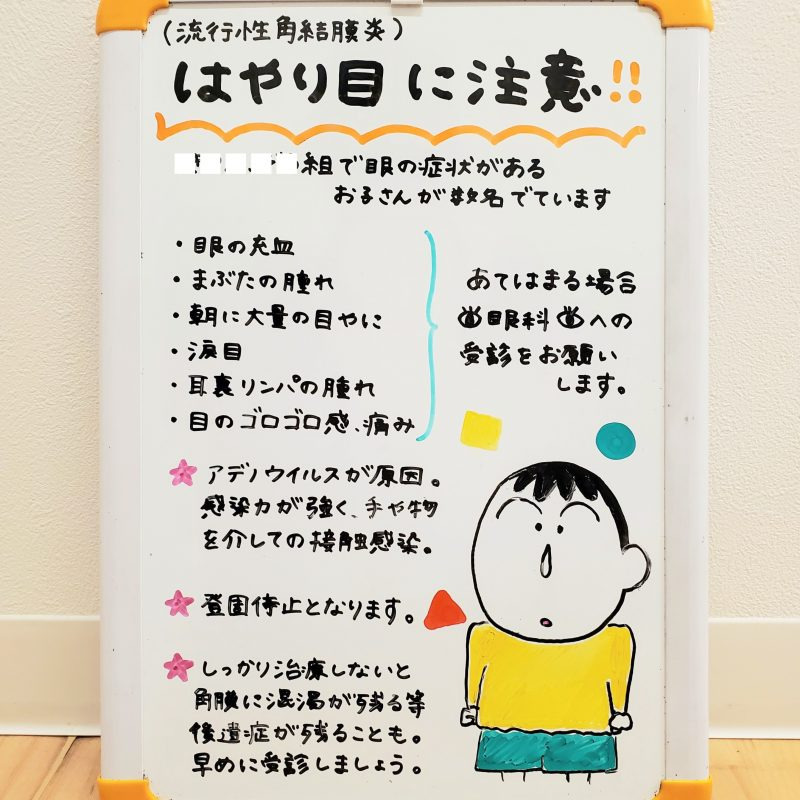 (流行性角結膜炎)
はやり目に注意!!
組で眼の症状がある
お子さんが数名でています
・眼の充血
・まぶたの腫れ
・朝に大量の目やに
・涙目
・耳裏リンパの腫れ
・目のゴロゴロ感、痛み
あてはまる場合
眼科への
受診をお願い
します。
アデノウイルスが原因。
感染力が強く、手や物
を介しての接触感染。
登園停止となります。
しっかり治療しないと
角膜に混濁が残る等
後遺症が残ることも。
早めに受診しましょう。